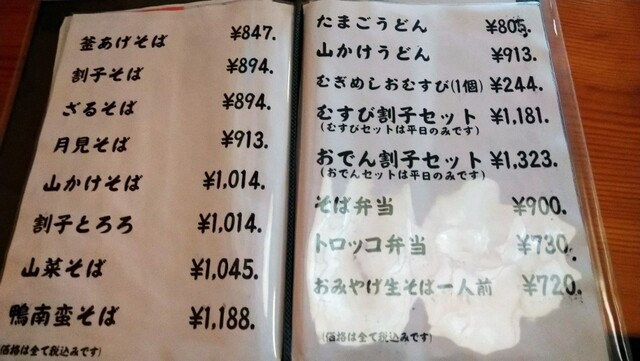 釜あげそば ¥847.
割子そば ¥894.
ざるそば ¥894.
月見そば ¥913.
山かけそば ¥1,014.
割子とろろ ¥1,014.
山菜そば ¥1,045.
鴨南蛮そば ¥1,188.
(価格は全て税込みです)
たまごうどん ¥805.
山かけうどん ¥913.
むぎめしおむすび(1個) ¥244.
むすび割子セット ¥1,181.
(むすびセットは平日のみです)
おでん割子セット ¥1,323.
(おでんセットは平日のみです)
そば弁当 ¥900.
トロッコ弁当 ¥730.
おみやげ生そば一人前 ¥720.
(価格は全て税込みです)